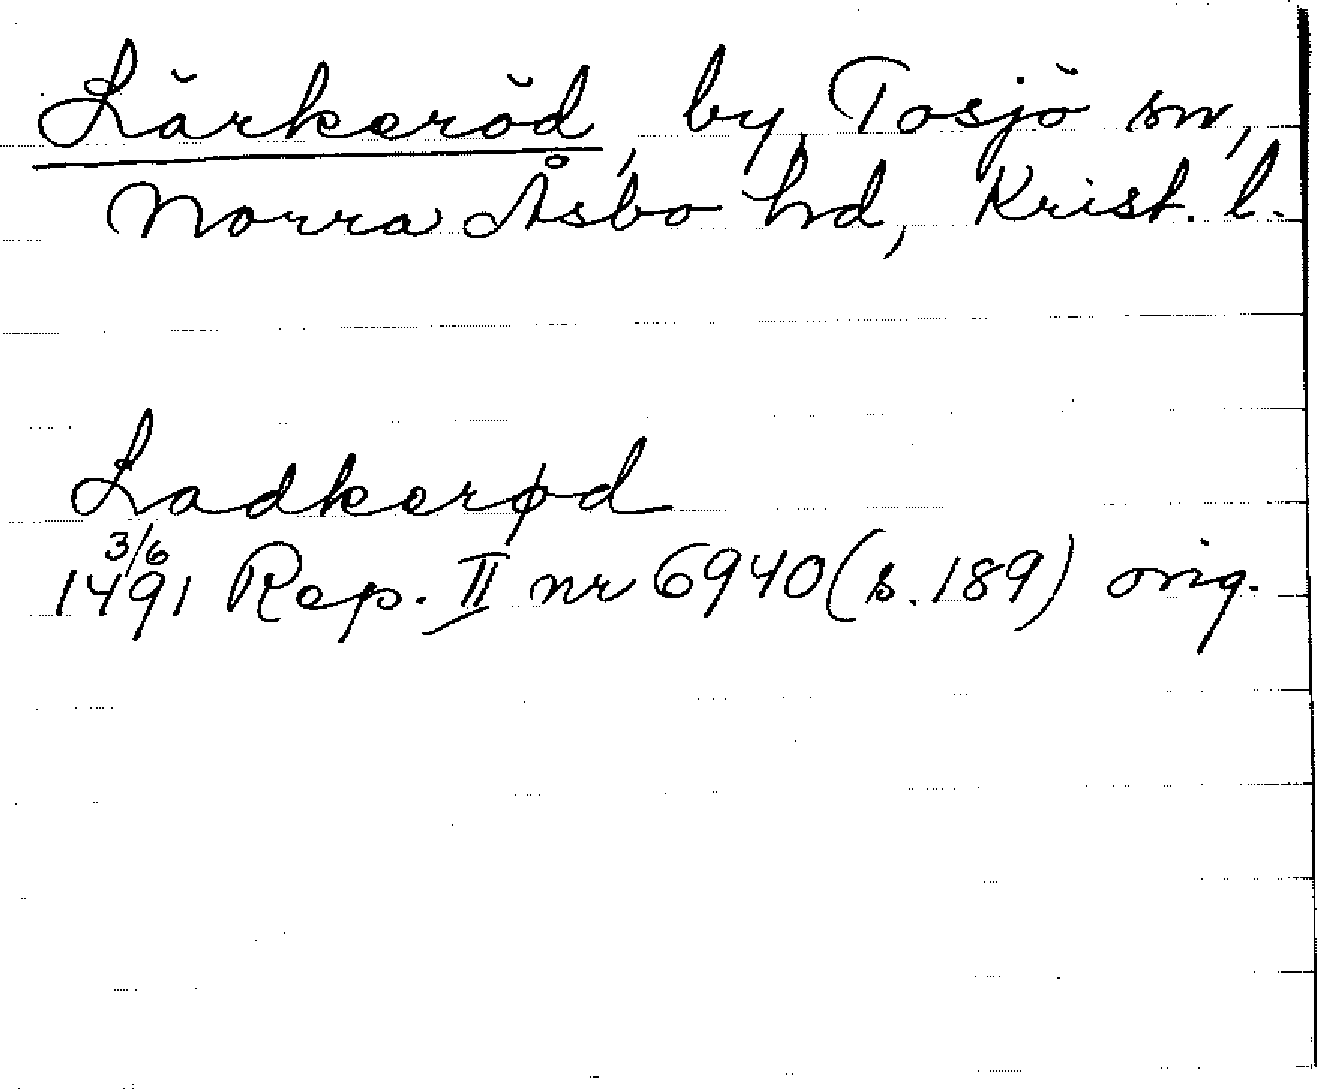 Lärkeröd, by, Tosjö sn,
Norra Åsbo hd, Krist. l.
Ladkerød
3/6
1491 Rep. II nr 6940 (s. 189) orig.